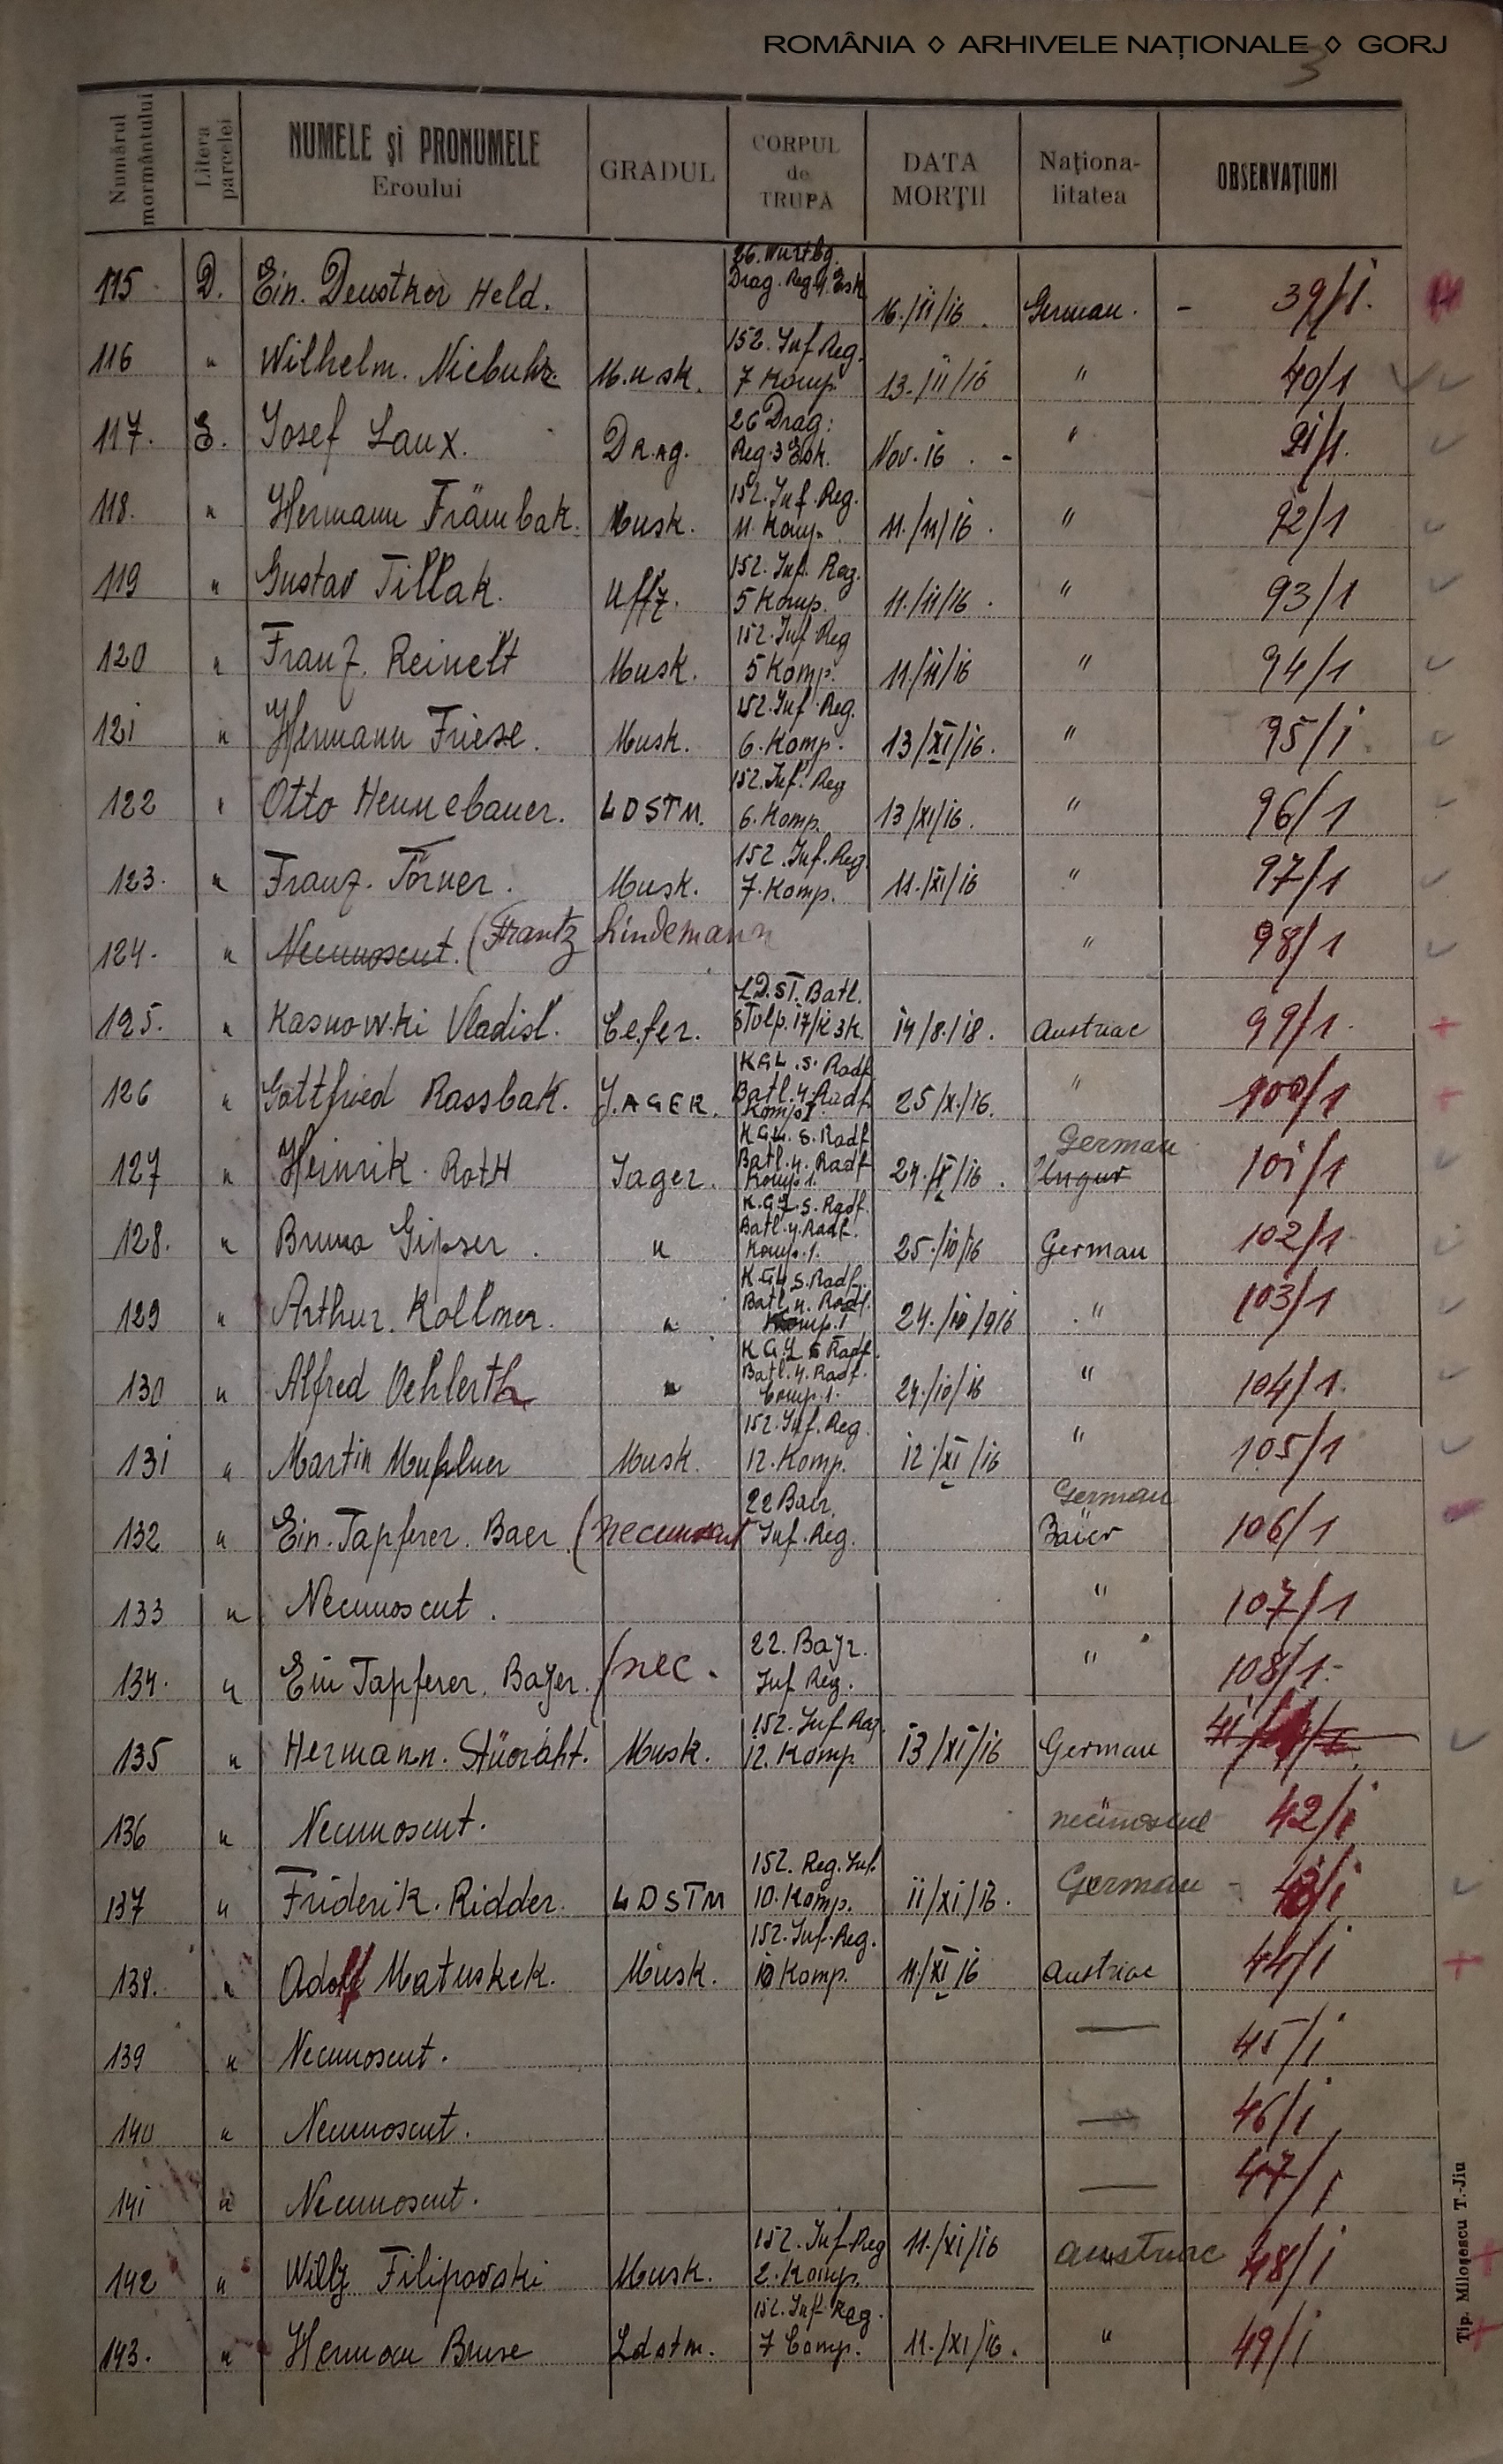 ROMÂNIA ◊ ARHIVELE NAȚIONALE ◊ GORJ
3
Numărul mormântului | Litera parcelei | NUMELE și PRONUMELE Eroului | GRADUL | CORPUL de TRUPĂ | DATA MORȚII | Naționa-litatea | OBSERVAȚIUNI
115 D. Ein. Deustker Held. 26. Wurtbg. Drag. Reg. 4. Esk 16./ii/16. German. - 39/1.
116 " Wilhelm. Niebuhr. Musk. 152. Inf Reg. 7 Komp. 13-/ii/16 " 40/1
117. E. Josef Laux. Drag. 26 Drag: Reg. 3 Esk. Nov. i6. - " 91/1.
118. " Hermann Främbak. Musk. 152. Inf. Reg. 11. Komp. 11./11/i6. " 92/1
119 " Gustav Tillak. Uffz. 152. Inf. Reg. 5 Komp. 11./ii/i6. " 93/1
120 " Franz. Reinelt Musk. 152. Inf Reg 5 Komp. 11./ii/i6 " 94/1
12i " Hermann Friese. Musk. 152. Inf. Reg. 6. Komp. 13/XI/i6. " 95/i
122 " Otto Hennebauer. LDSTM. 152. Inf. Reg 6. Komp. 13/XI/i6. " 96/1
123. " Franz. Törner. Musk. 152. Inf. Reg 7. Komp. 11./XI/i6 " 97/1
124. " Necunoscut. (Frantz Lindemann " 98/1
125. " Kasnowki Vladisl. Gefer. LD. ST. Batl. i4/8./i8. Austriac 99/1.
126 " Gottfried Rassbak. JAGER. KGL. S. Radf Batl. 4. Radf Komp 1. 25/X./i6. " 100/1
127 " Heinrik. Roth Jager. KGL. S. Radf Batl. 4. Radf Komp 1. 24./X/i6. German Ungur 10i/1
128. " Bruno Gipser. " K.GL.S. Radf. Batl. 4. Radf. Komp. 1. 25./i0/i6 German 102/1
129 " Arthur. Kollmer. " K GL S. Radf. Batl. 4. Radf. Komp. 1 24./i0/9i6 " 103/1
130 " Alfred Oehlerth " K GL S Radf. Batl. 4. Radf. Comp. 1. 24./i0/i6 " 104/1.
13i " Martin Mußlner Musk. 152. Inf. Reg. 12. Komp. i2./XI/i6 " 105/1
132 " Ein. Tapferer. Baer (necunoscut 22 Bair. Inf. Reg. German Baier 106/1
133 " Necunoscut. " 107/1
134. " Ein Tapferer. Bayer. (nec. 22. Bayr. Inf Reg. " 108/1.-
135 " Hermann. Stüoräht. Musk. 152. Inf Reg. i2. Komp i3/XI/i6 German 41/
136 " Necunoscut. necunoscut 42/i
137 " Friderik. Ridder. LDSTM 152. Reg. Inf. 10. Komp. ii/XI/i6. German - 43/i
138. " Adolf Matuskek. Musk. 152. Inf. Reg. i0 Komp. 11./XI/i6 Austriac 44/i
139 " Necunoscut. — 45/i
140 " Necunoscut. — 46/i
14i " Necunoscut. — 47/i
142 " Willy Filipovski Musk. 152. Inf Reg 2. Komp. 11./XI/i6 austriac 48/i
143. " Herman Bruse Ldstm. 152. Inf. Reg. 7 Comp. 11./XI/i6. " 49/i
Tip. Miloșescu T.-Jiu